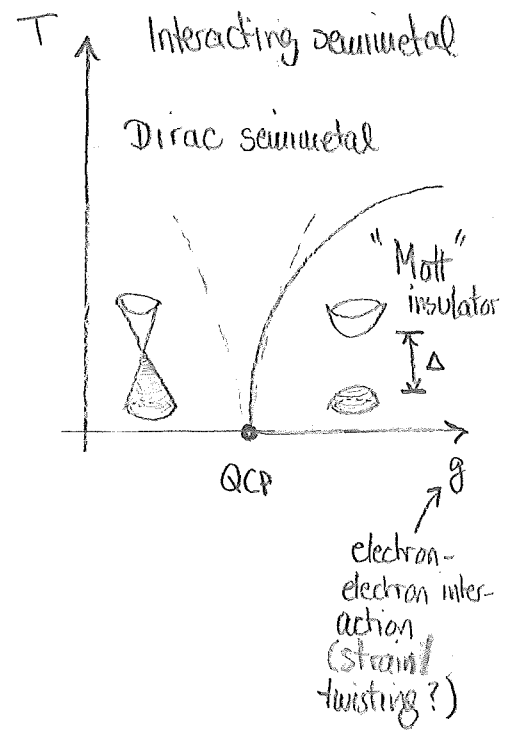 T
Interacting semimetal
Dirac semimetal
"Mott"
insulator
Δ
QCP
g
electron-
electron inter-
action
(strain/
twisting?)